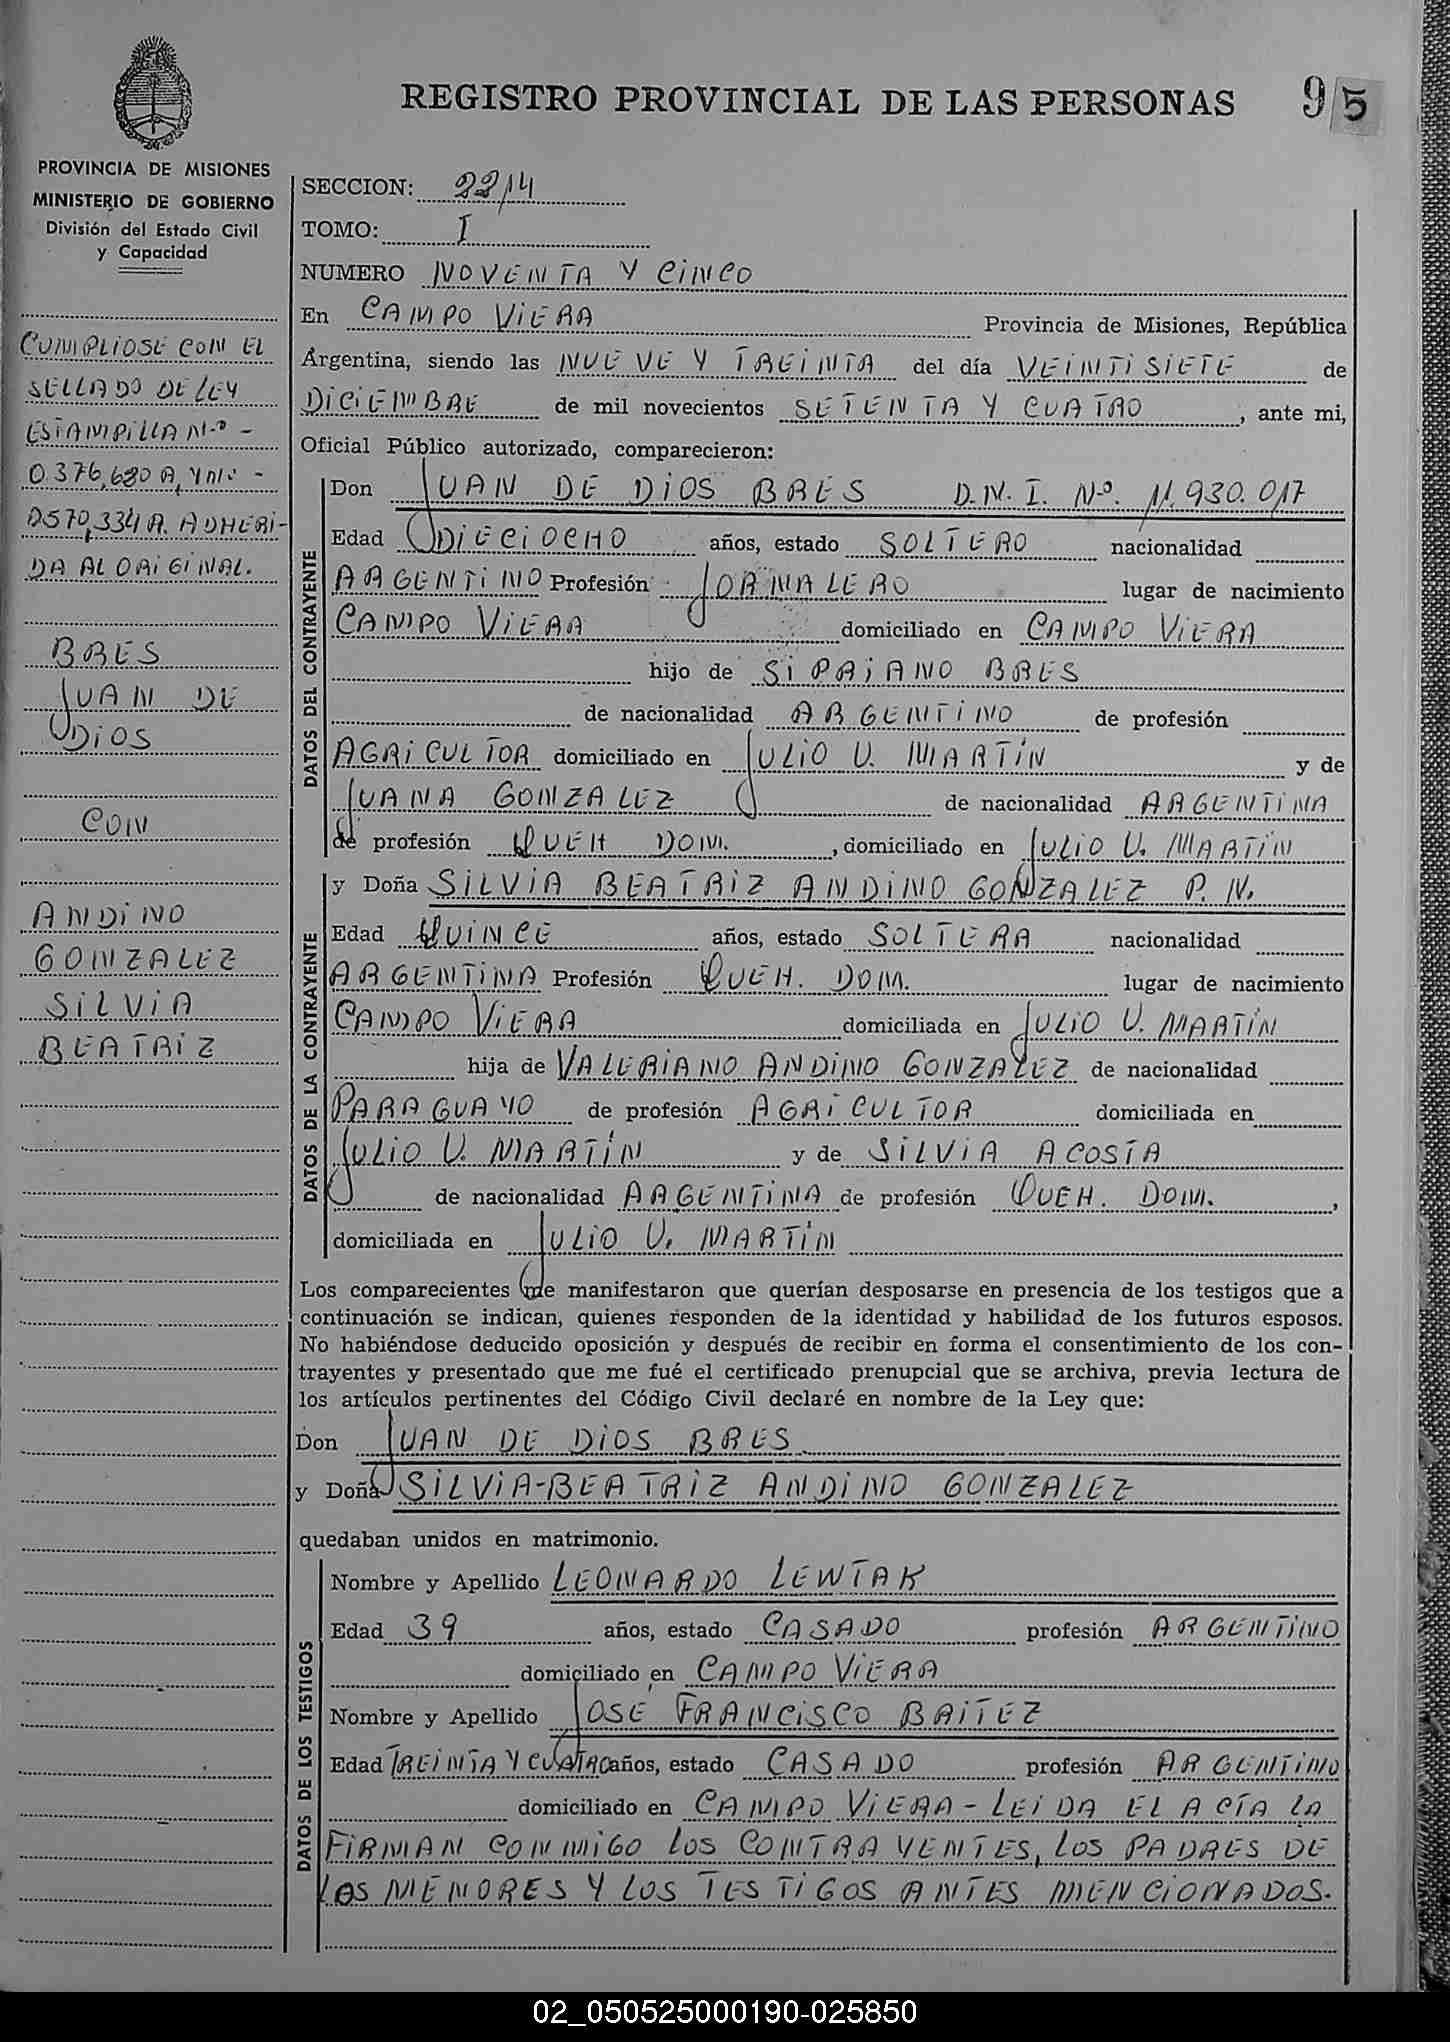 REGISTRO PROVINCIAL DE LAS PERSONAS 95
PROVINCIA DE MISIONES
MINISTERIO DE GOBIERNO
División del Estado Civil
y Capacidad
CUMPLIOSE CON EL
SELLADO DE LEY
ESTAMPILLA Nº -
0.376,680 A, Y Nº -
0.570,334 A. ADHERI-
DA AL ORIGINAL.
BRES
JUAN DE
DIOS
CON
ANDINO
GONZALEZ
SILVIA
BEATRIZ
SECCION: 2214
TOMO: I
NUMERO NOVENTA Y CINCO
En CAMPO VIERA Provincia de Misiones, República
Argentina, siendo las NUEVE Y TREINTA del día VEINTISIETE de
DICIEMBRE de mil novecientos SETENTA Y CUATRO, ante mi,
Oficial Público autorizado, comparecieron:
DATOS DEL CONTRAYENTE
Don JUAN DE DIOS BRES D.N.I. Nº. 11.930.017
Edad DIECIOCHO años, estado SOLTERO nacionalidad
ARGENTINO Profesión JORNALERO lugar de nacimiento
CAMPO VIERA domiciliado en CAMPO VIERA
hijo de SIPRIANO BRES
de nacionalidad ARGENTINO de profesión
AGRICULTOR domiciliado en JULIO U. MARTÍN y de
JUANA GONZALEZ de nacionalidad ARGENTINA
de profesión QUEH DOM. , domiciliado en JULIO U. MARTÍN
DATOS DE LA CONTRAYENTE
y Doña SILVIA BEATRIZ ANDINO GONZALEZ P. N.
Edad QUINCE años, estado SOLTERA nacionalidad
ARGENTINA Profesión QUEH. DOM. lugar de nacimiento
CAMPO VIERA domiciliada en JULIO U. MARTÍN
hija de VALERIANO ANDINO GONZALEZ de nacionalidad
PARAGUAYO de profesión AGRICULTOR domiciliada en
JULIO U. MARTÍN y de SILVIA ACOSTA
de nacionalidad ARGENTINA de profesión QUEH. DOM. ,
domiciliada en JULIO U. MARTÍN
Los comparecientes me manifestaron que querían desposarse en presencia de los testigos que a
continuación se indican, quienes responden de la identidad y habilidad de los futuros esposos.
No habiéndose deducido oposición y después de recibir en forma el consentimiento de los con-
trayentes y presentado que me fué el certificado prenupcial que se archiva, previa lectura de
los artículos pertinentes del Código Civil declaré en nombre de la Ley que:
Don JUAN DE DIOS BRES
y Doña SILVIA-BEATRIZ ANDINO GONZALEZ
quedaban unidos en matrimonio.
DATOS DE LOS TESTIGOS
Nombre y Apellido LEONARDO LEWTAK
Edad 39 años, estado CASADO profesión ARGENTINO
domiciliado en CAMPO VIERA
Nombre y Apellido JOSE FRANCISCO BAITEZ
Edad TREINTA Y CUATRO años, estado CASADO profesión ARGENTINO
domiciliado en CAMPO VIERA - LEIDA EL ACTA LA
FIRMAN CONMIGO LOS CONTRAYENTES, LOS PADRES DE
LOS MENORES Y LOS TESTIGOS ANTES MENCIONADOS.
02_050525000190-025850